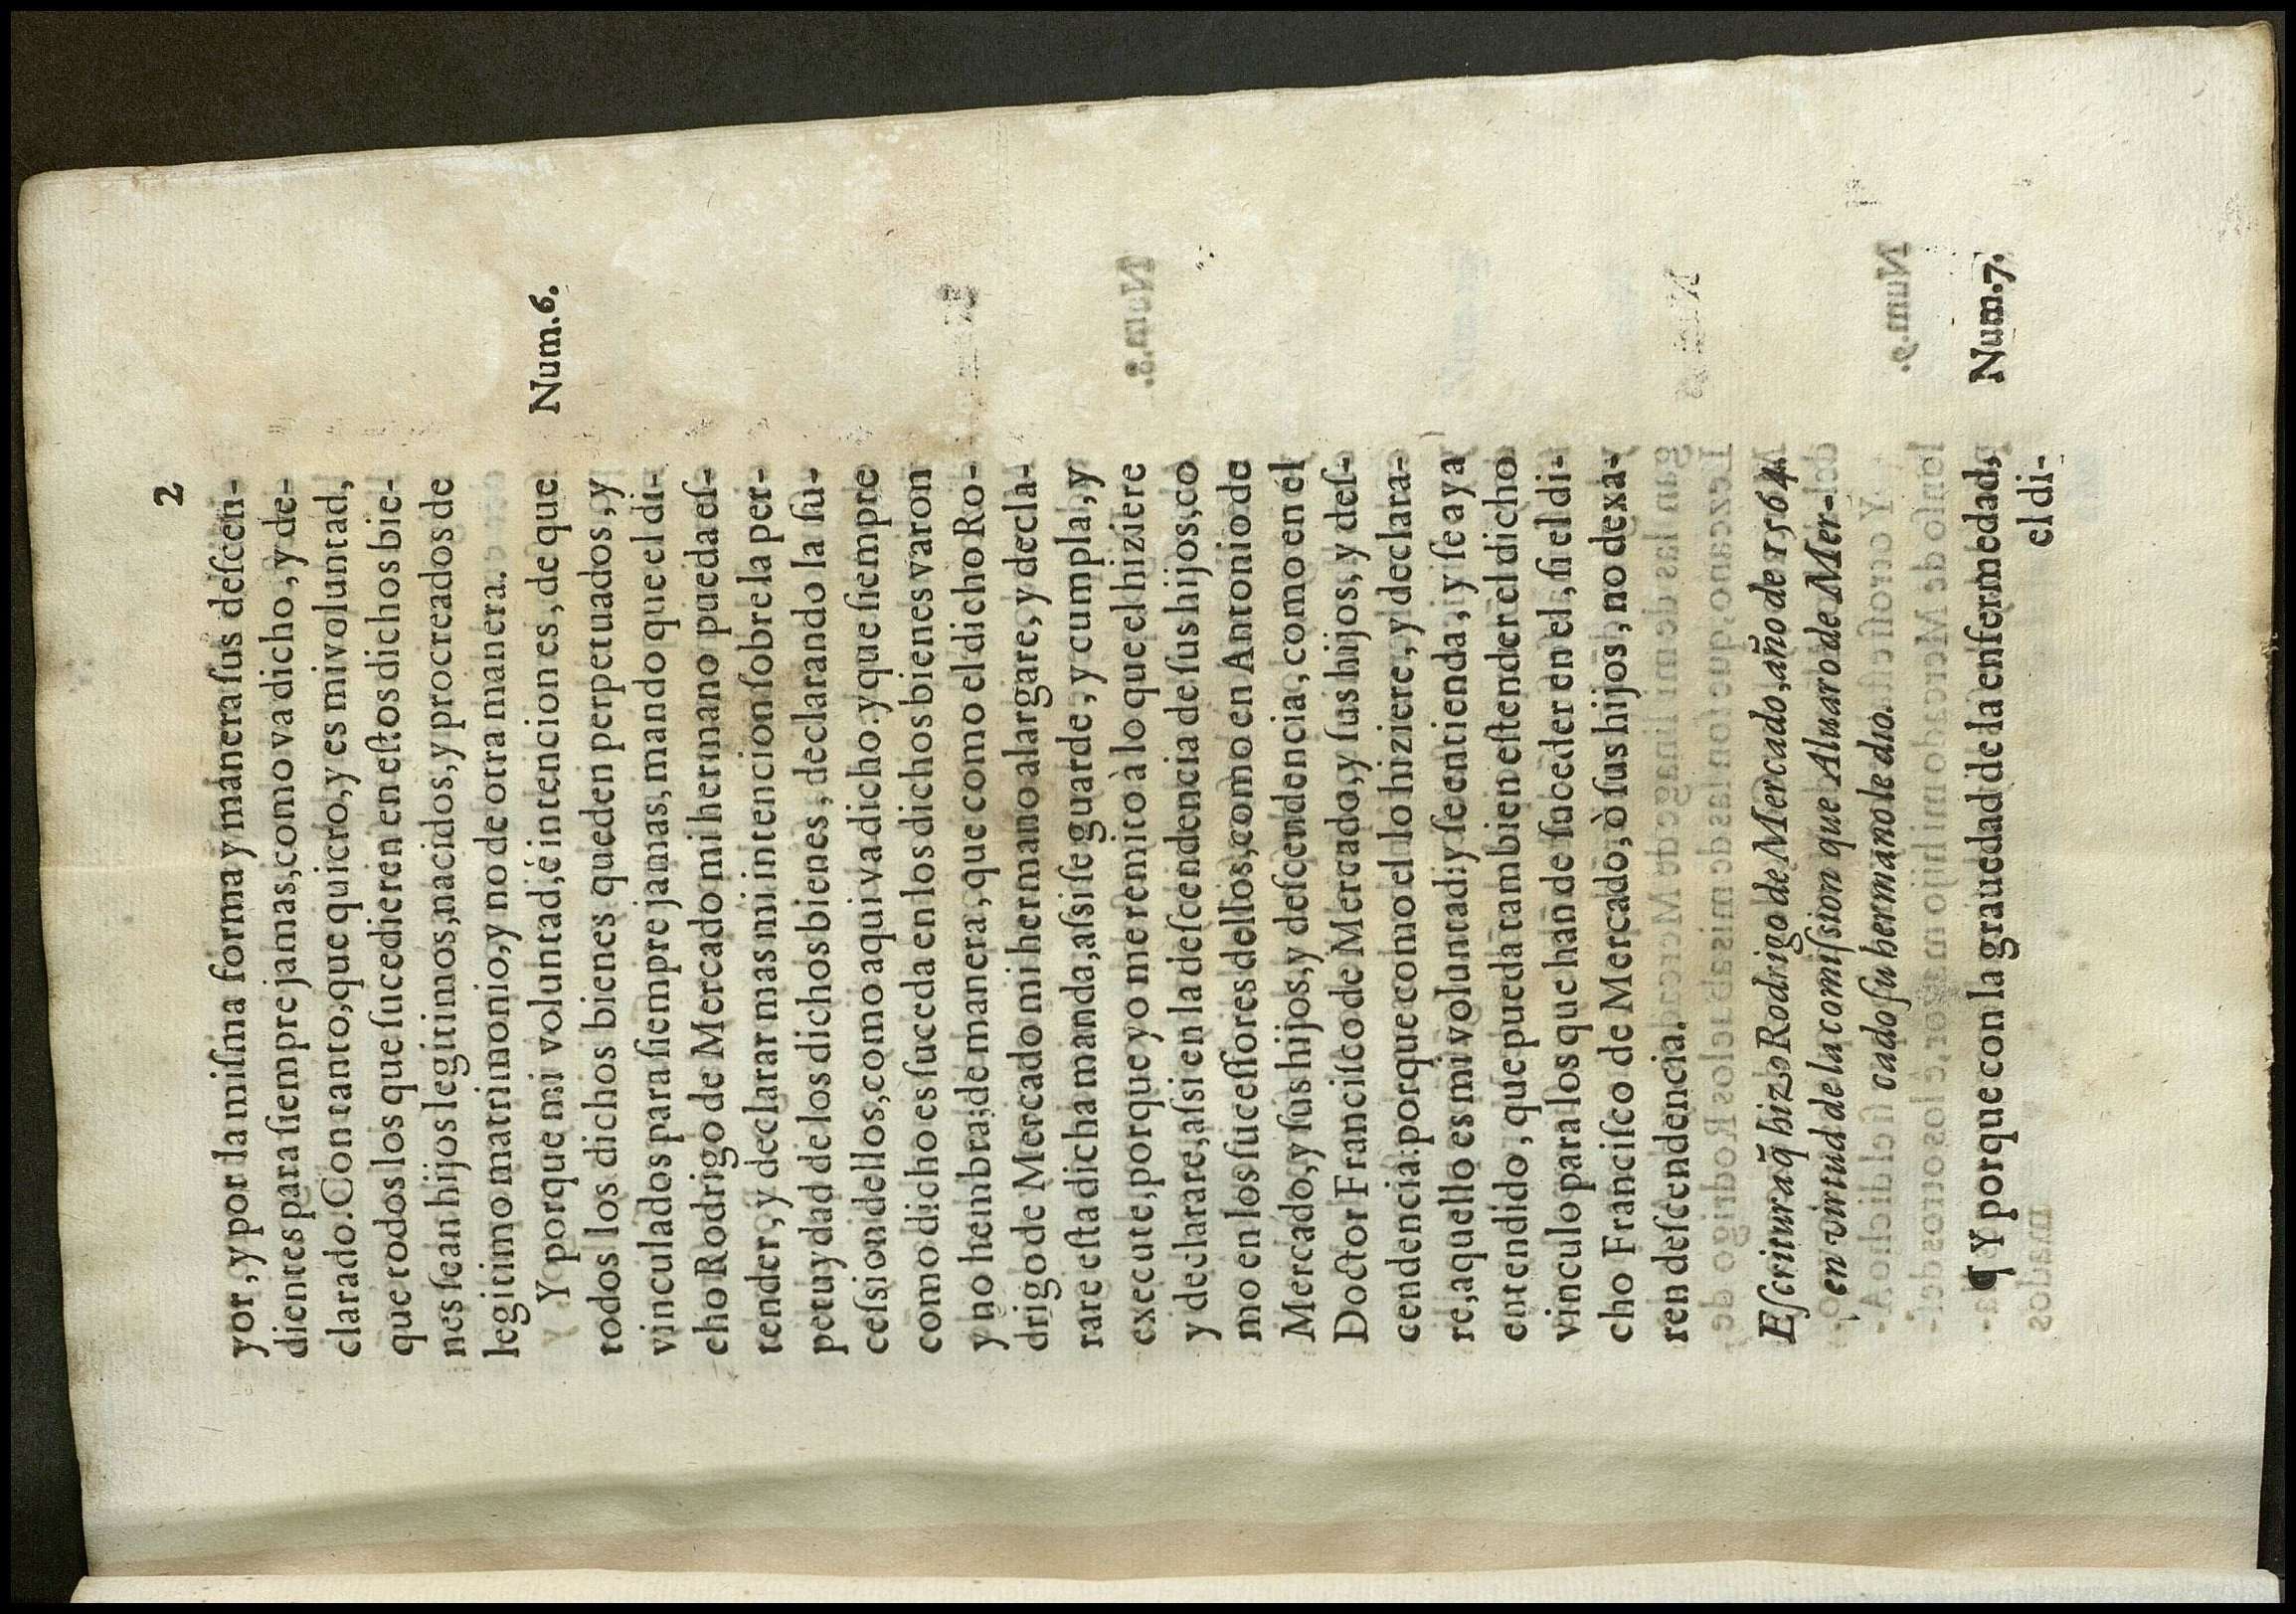 2
yor, y por la miſma forma y manera ſus deſcen-
dientes para ſiempre jamas, como va dicho, y de-
clarado. Con tanto, que quiero, y es mi voluntad,
que todos los que ſucedieren en eſtos dichos bie-
nes ſean hijos legitimos, nacidos, y procreados de
legitimo matrimonio, y no de otra manera.
Y porque mi voluntad, è intencion es, de que Num.6.
todos los dichos bienes queden perpetuados, y
vinculados para ſiempre jamas, mando que el di-
cho Rodrigo de Mercado mi hermano pueda eſ-
tender, y declarar mas mi intencion ſobre la per-
petuydad de los dichos bienes, declarando la ſu-
ceſsion dellos, como aqui va dicho: y que ſiempre
como dicho es ſuceda en los dichos bienes varon
y no hembra; de manera, que como el dicho Ro-
drigo de Mercado mi hermano alargare, y decla-
rare eſta dicha manda, aſsi ſe guarde, y cumpla, y
execute, porque yo me remito à lo que el hiziere
y declarare, aſsi en la deſcendencia de ſus hijos, co
mo en los ſuceſſores dellos, como en Antonio de
Mercado, y ſus hijos, y deſcendencia, como en él
Doctor Franciſco de Mercado, y ſus hijos, y deſ-
cendencia: porque como el lo hiziere, y declara-
re, aquello es mi voluntad: y ſe entienda, y ſe aya
entendido, que pueda tambien eſtender el dicho
vinculo para los que han de ſuceder en el, ſi el di-
cho Franciſco de Mercado, ò ſus hijos, no dexa-
ren deſcendencia.
Eſcritura q̃ hizo Rodrigo de Mercado, año de 1564.
en virtud de la comiſsion que Aluaro de Mer-
cado ſu hermano le dio.
¶ Y porque con la grauedad de la enfermedad, Num.7.
el di-